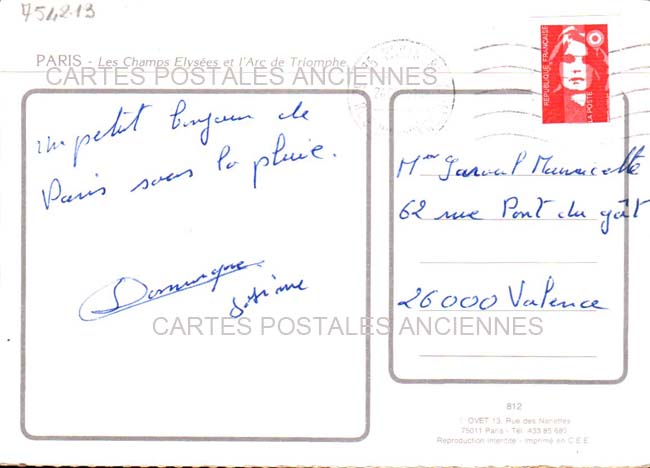 754213
PARIS - Les Champs Elysées et l'Arc de Triomphe
CARTES POSTALES ANCIENNES
un petit bonjour de
Paris sous la pluie.
Dominique
CARTES POSTALES ANCIENNES
REPUBLIQUE FRANÇAISE
LA POSTE
Mme
62 rue Pont du gât
26000 Valence
812
OVET 13, Rue des Nanettes
75011 Paris - Tél. 433 85 680
Reproduction interdite - Imprimé en C.E.E.